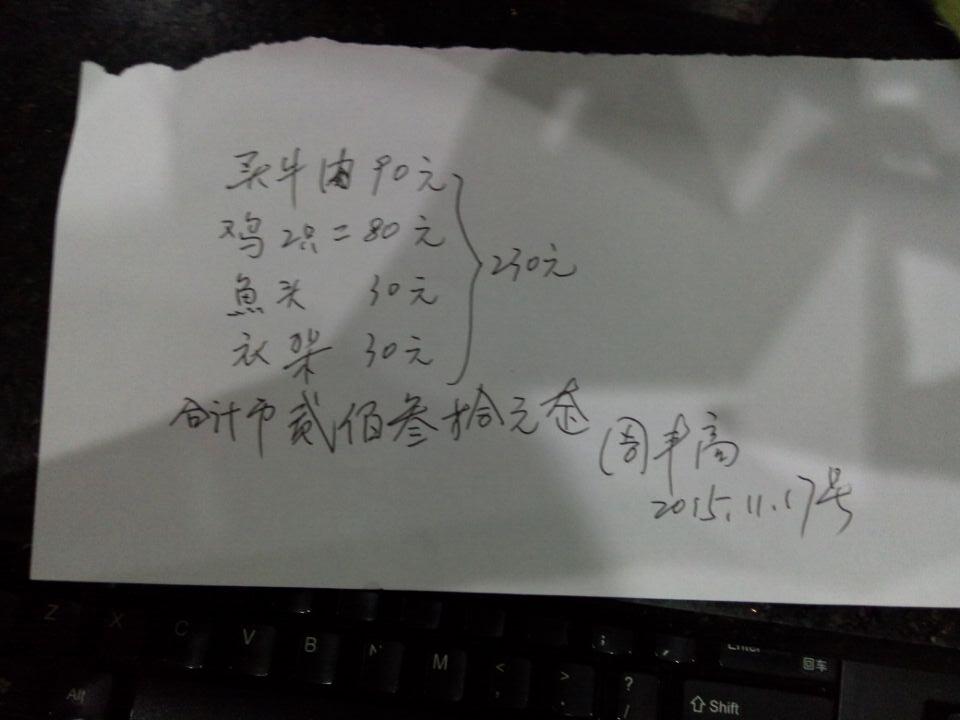 买牛肉 90元
鸡2只=80元
魚头 30元
衣架 30元
230元
合计币贰佰叁拾元
周丰高
2015.11.17号
Z X C V B N M < , > . ? / ; Enter 回车
Alt Shift